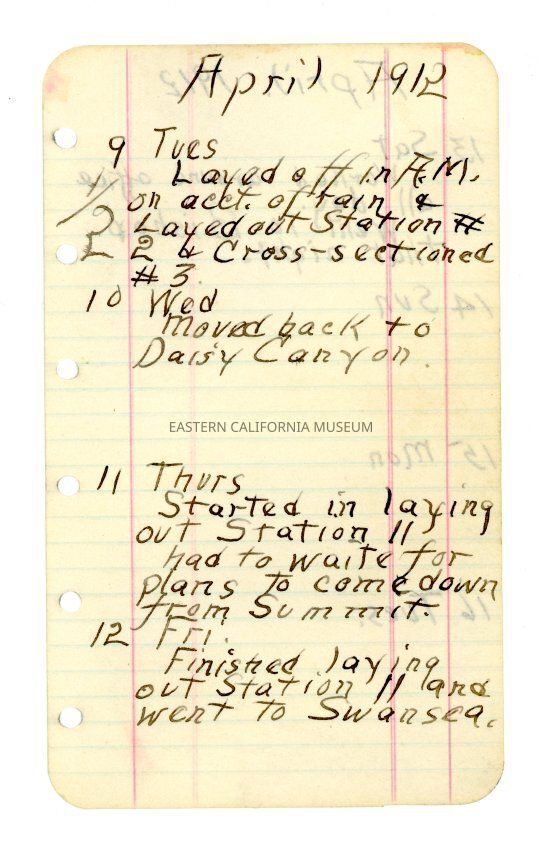 April 1912
9 Tues
Layed off in A.M.
on acct. of rain &
1/2 Layed out Station #
2 & Cross sectioned
# 3
10 Wed
Moved back to
Daisy Canyon.
EASTERN CALIFORNIA MUSEUM
11 Thurs
Started in laying
out Station 11
had to waite for
plans to come down
from Summit.
12 Fri.
Finished laying
out Station 11 and
went to Swansea.